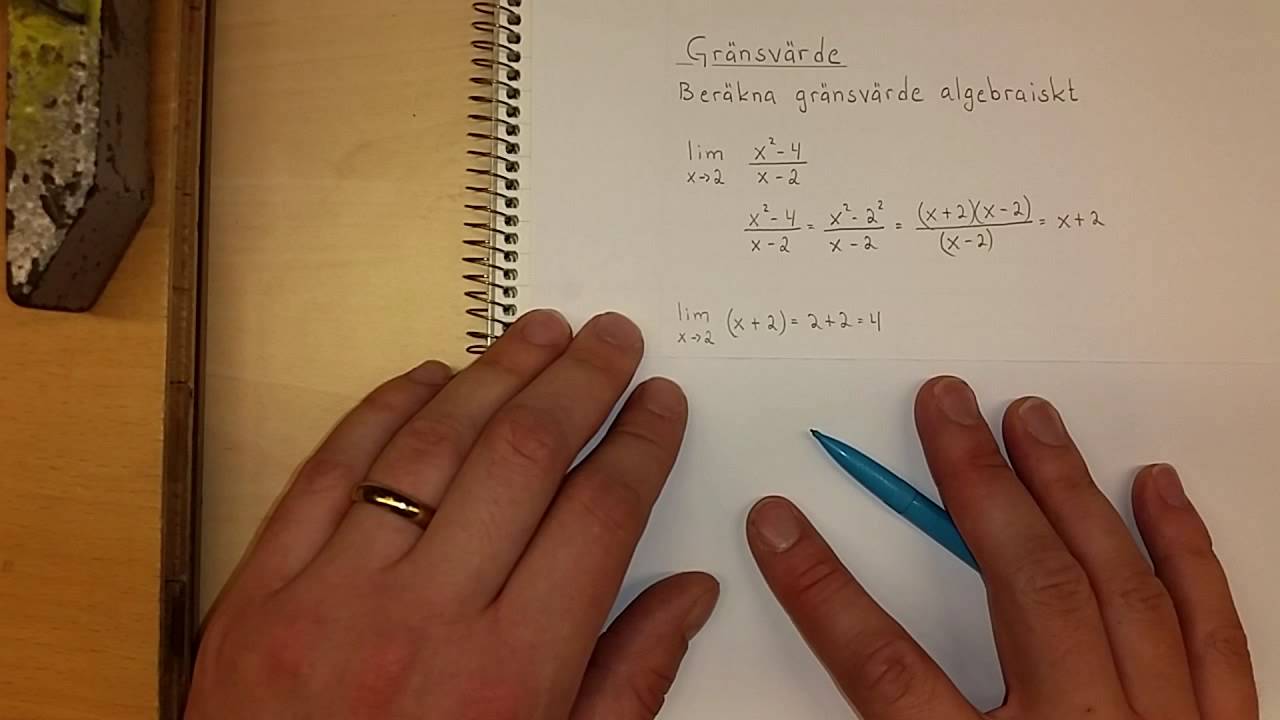 Gränsvärde
Beräkna gränsvärde algebraiskt
lim x→2 (x²-4)/(x-2)
(x²-4)/(x-2) = (x²-2²)/(x-2) = ((x+2)(x-2))/((x-2)) = x+2
lim x→2 (x+2) = 2+2=4